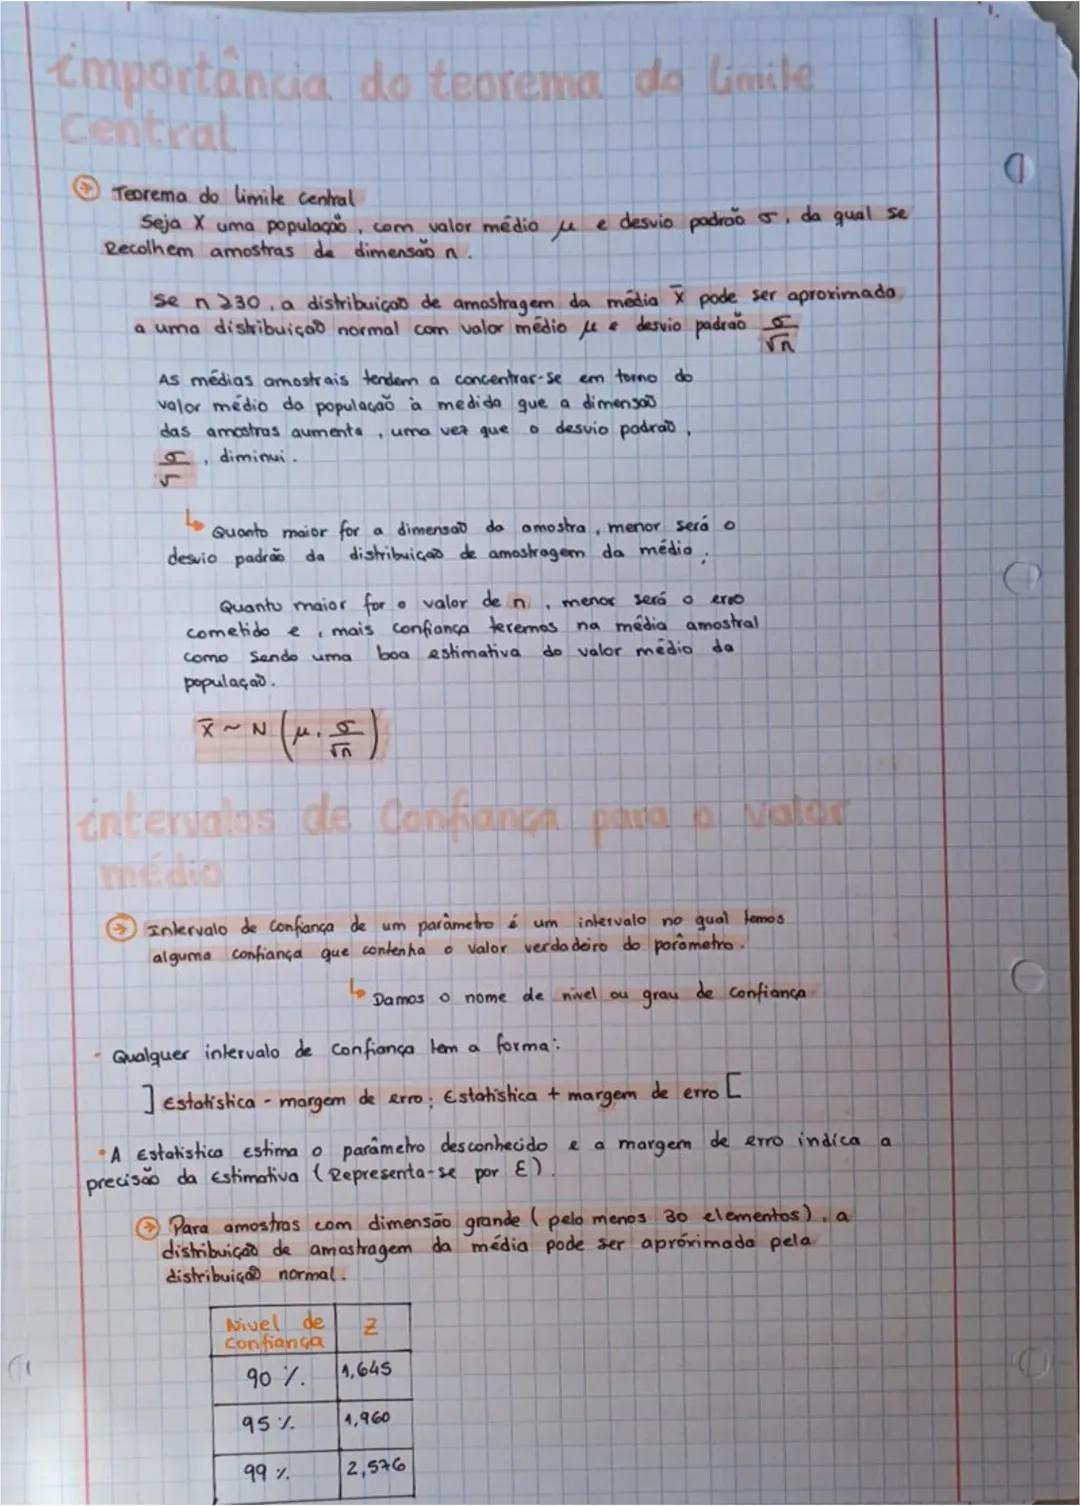 importância do teorema do limite
central
Teorema do limite central
Seja X uma população, com valor médio μ e desvio padrão σ, da qual se
Recolhem amostras de dimensão n.
Se n ≥30, a distribuição de amostragem da média x̄ pode ser aproximada
a uma distribuição normal com valor médio μ e desvio padrão σ/√n
As médias amostrais tendem a concentrar-se em torno do
valor médio da população à medida que a dimensão
das amostras aumenta, uma vez que o desvio padrão,
σ/√, diminui.
Quanto maior for a dimensão da amostra, menor será o
desvio padrão da distribuição de amostragem da média.
Quanto maior for o valor de n, menor será o erro
cometido e, mais confiança teremos na média amostral
como sendo uma boa estimativa do valor médio da
população.
x̄ ~ N (μ, σ/√n)
intervalos de Confiança para o valor
médio
Intervalo de confiança de um parâmetro é um intervalo no qual temos
alguma confiança que contenha o valor verdadeiro do parâmetro.
Damos o nome de nível ou grau de confiança
• Qualquer intervalo de confiança tem a forma:
] Estatística - margem de erro; Estatística + margem de erro [
• A Estatística estima o parâmetro desconhecido e a margem de erro indica a
precisão da Estimativa (Representa-se por Ɛ).
Para amostras com dimensão grande (pelo menos 30 elementos), a
distribuição de amostragem da média pode ser apróximada pela
distribuição normal.
Nível de Z
confiança
90 % 1,645
95 % 1,960
99 % 2,576